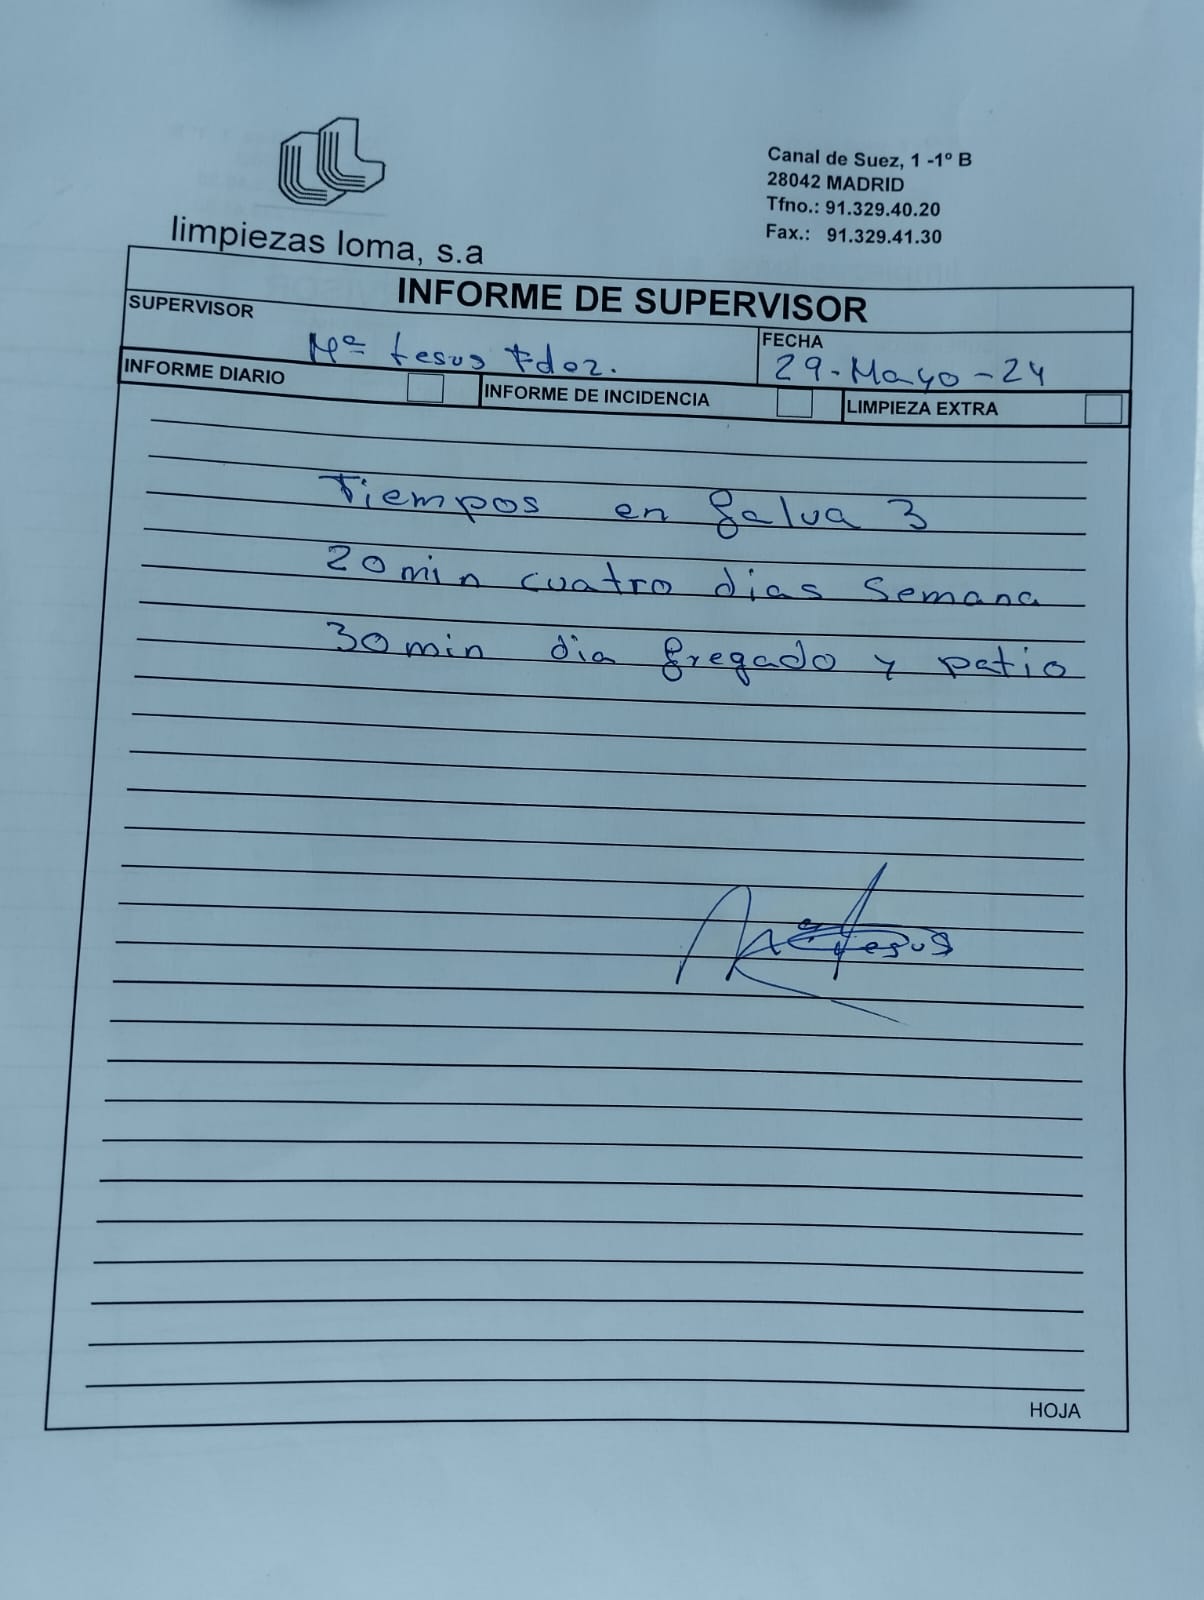 limpiezas loma, s.a
Canal de Suez, 1 -1º B
28042 MADRID
Tfno.: 91.329.40.20
Fax.: 91.329.41.30
INFORME DE SUPERVISOR
SUPERVISOR
Mª Jesus Fdez.
FECHA
29-Mayo-24
INFORME DIARIO
INFORME DE INCIDENCIA
LIMPIEZA EXTRA
Tiempos en galva 3
20 min cuatro dias semana
30 min dia fregado y patio
Mª Jesus
HOJA